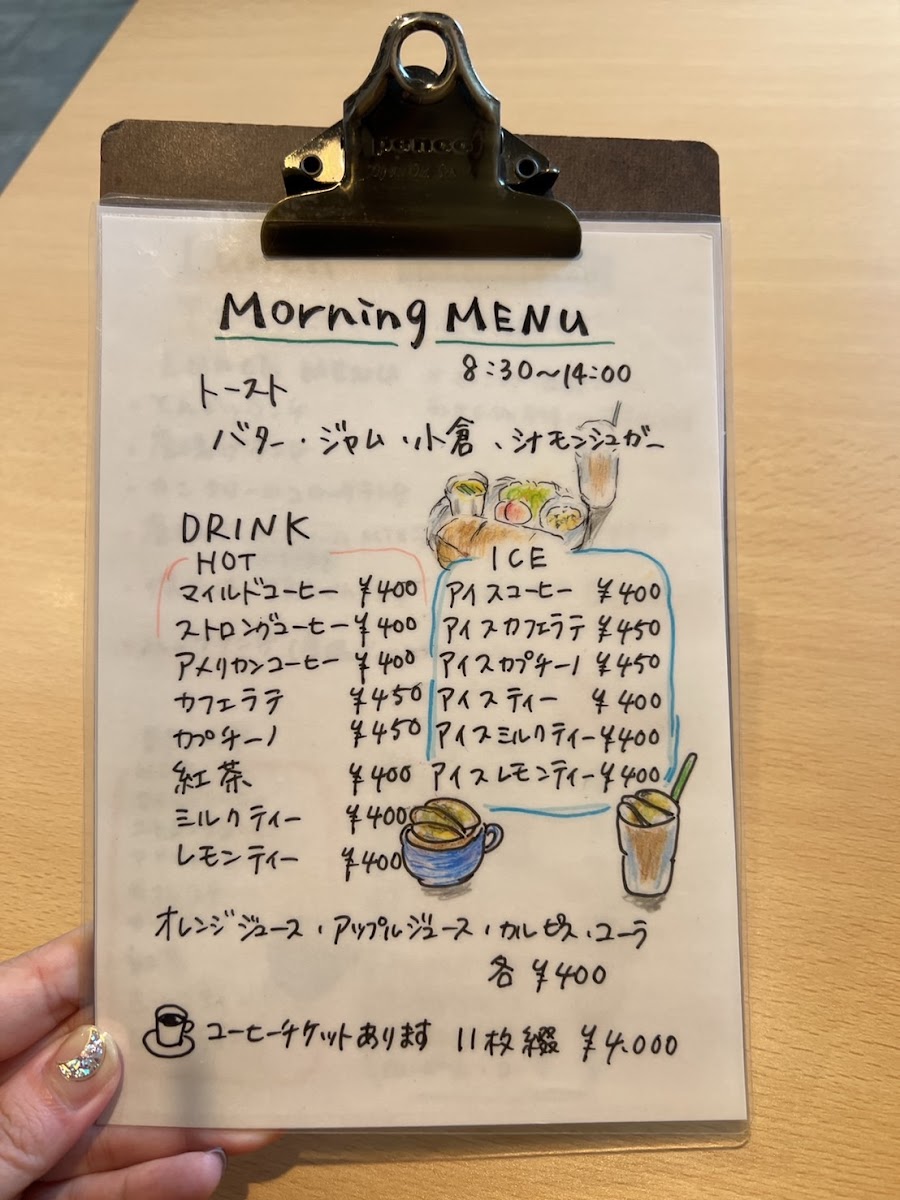 penco
Morning MENU
8:30〜14:00
トースト
バター・ジャム・小倉、シナモンシュガー
DRINK
HOT
マイルドコーヒー ¥400
ストロングコーヒー ¥400
アメリカンコーヒー ¥400
カフェラテ ¥450
カプチーノ ¥450
紅茶 ¥400
ミルクティー ¥400
レモンティー ¥400
ICE
アイスコーヒー ¥400
アイスカフェラテ ¥450
アイスカプチーノ ¥450
アイスティー ¥400
アイスミルクティー ¥400
アイスレモンティー ¥400
オレンジジュース・アップルジュース・カルピス・コーラ
各 ¥400
コーヒーチケットあります 11枚綴 ¥4.000